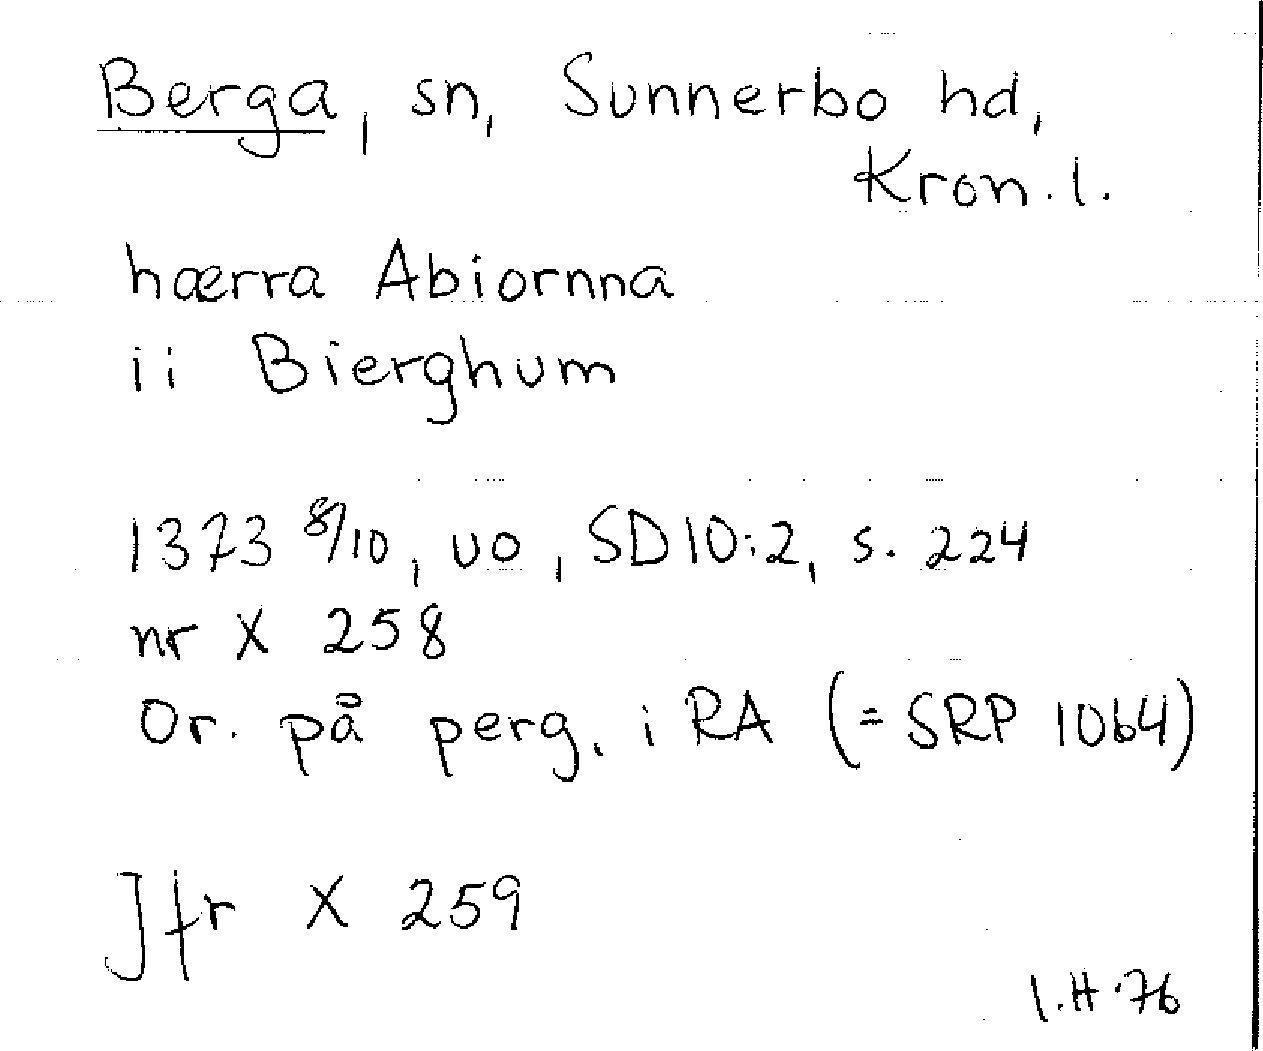 Berga, sn, Sunnerbo hd,
Kron. l.
hærra Abiornna
ii Bierghum
1373 8/10, uo, SD 10:2, s. 224
nr X 258
Or. på perg. i RA (= SRP 1064)
Jfr X 259
I.H.76